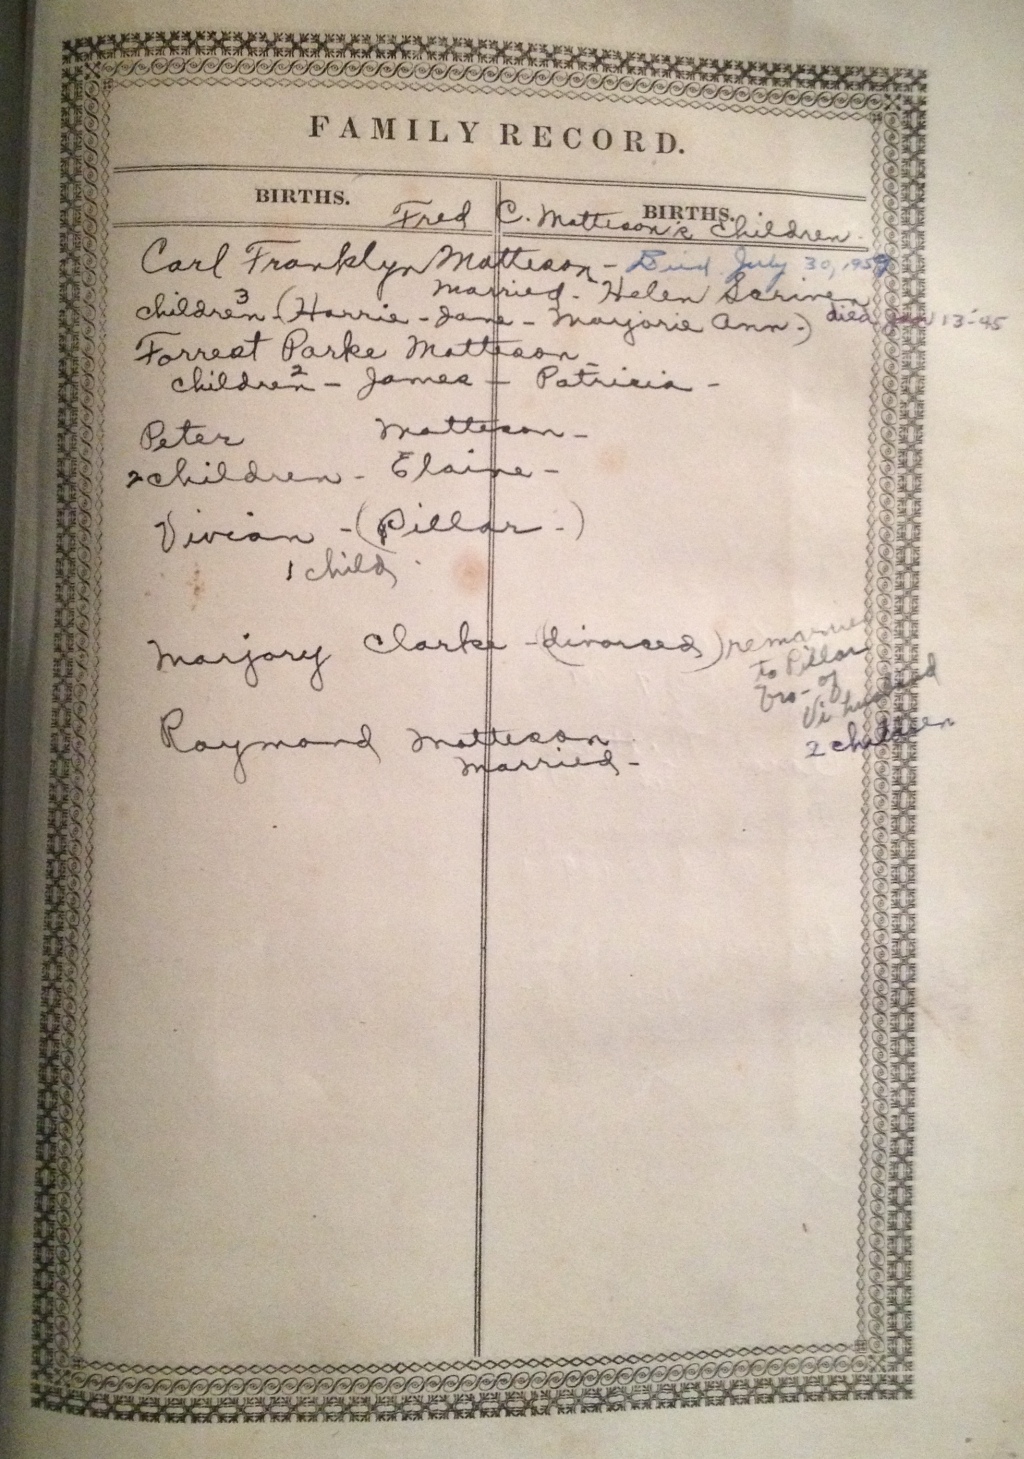 FAMILY RECORD.
BIRTHS. BIRTHS.
Fred C. Matteson's Children.
Carl Franklyn Matteson - Died July 30, 1959
married - Helen Scriven
children 3 (Harrie - Jane - Marjorie Ann -) died 13-45
Forrest Parke Matteson -
children 2 - James - Patricia -
Peter Matteson -
2 children - Elaine -
Vivian - (Pillar -)
1 child
Marjory Clarke - (divorced) remarried
to Pillar
bro- of
Vi husband
2 children
Raymond Matteson
married -